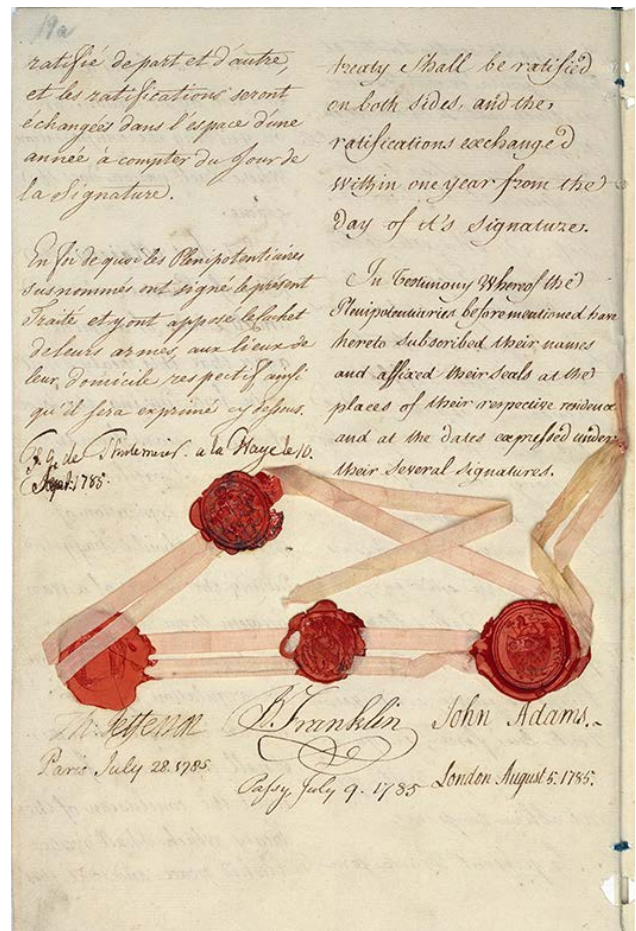 19a
ratifié de part et d'autre,
et les ratifications seront
échangées dans l'espace d'une
année à compter du Jour de
la Signature.
En foi de quoi les Plenipotentiaires
susnommés ont signé le présent
Traité et y ont apposé le cachet
de leurs armes, aux lieux de
leur domicile respectif ainsi
qu'il sera exprimé cy dessous.
F. G. de Thulemeier. a la Haye le 10.
Sept. 1785.
treaty Shall be ratified
on both sides, and the
ratifications exchanged
within one year from the
Day of it's signature.
In Testimony Whereof the
Plenipotentiaries before mentioned have
hereto subscribed their names
and affixed their seals at the
places of their respective residence
and at the dates expressed under
their several signatures.
Th: Jefferson
Paris July 28. 1785.
B. Franklin
Passy, July 9. 1785
John Adams.
London August 5. 1785.